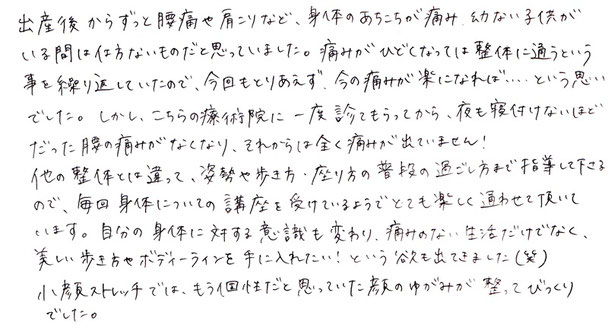 出産後からずっと腰痛や肩こりなど、身体のあちこちが痛み、幼ない子供が
いる間は仕方ないものだと思っていました。痛みがひどくなっては整体に通うという
事を繰り返していたので、今回もとりあえず、今の痛みが楽になれば…. という思い
でした。しかし、こちらの療術院に一度診てもらってから、夜も寝付けないほど
だった腰の痛みがなくなり、それからは全く痛みが出ていません!
他の整体とは違って、姿勢や歩き方・座り方の普段の過ごし方まで指導して下さる
ので、毎回身体についての講座を受けているようでとても楽しく通わせて頂いて
います。自分の身体に対する意識も変わり、痛みのない生活だけでなく、
美しい歩き方やボディーラインを手に入れたい!という欲も出てきました(笑)
小顔ストレッチでは、もう個性だと思っていた顔のゆがみが整ってびっくり
でした。